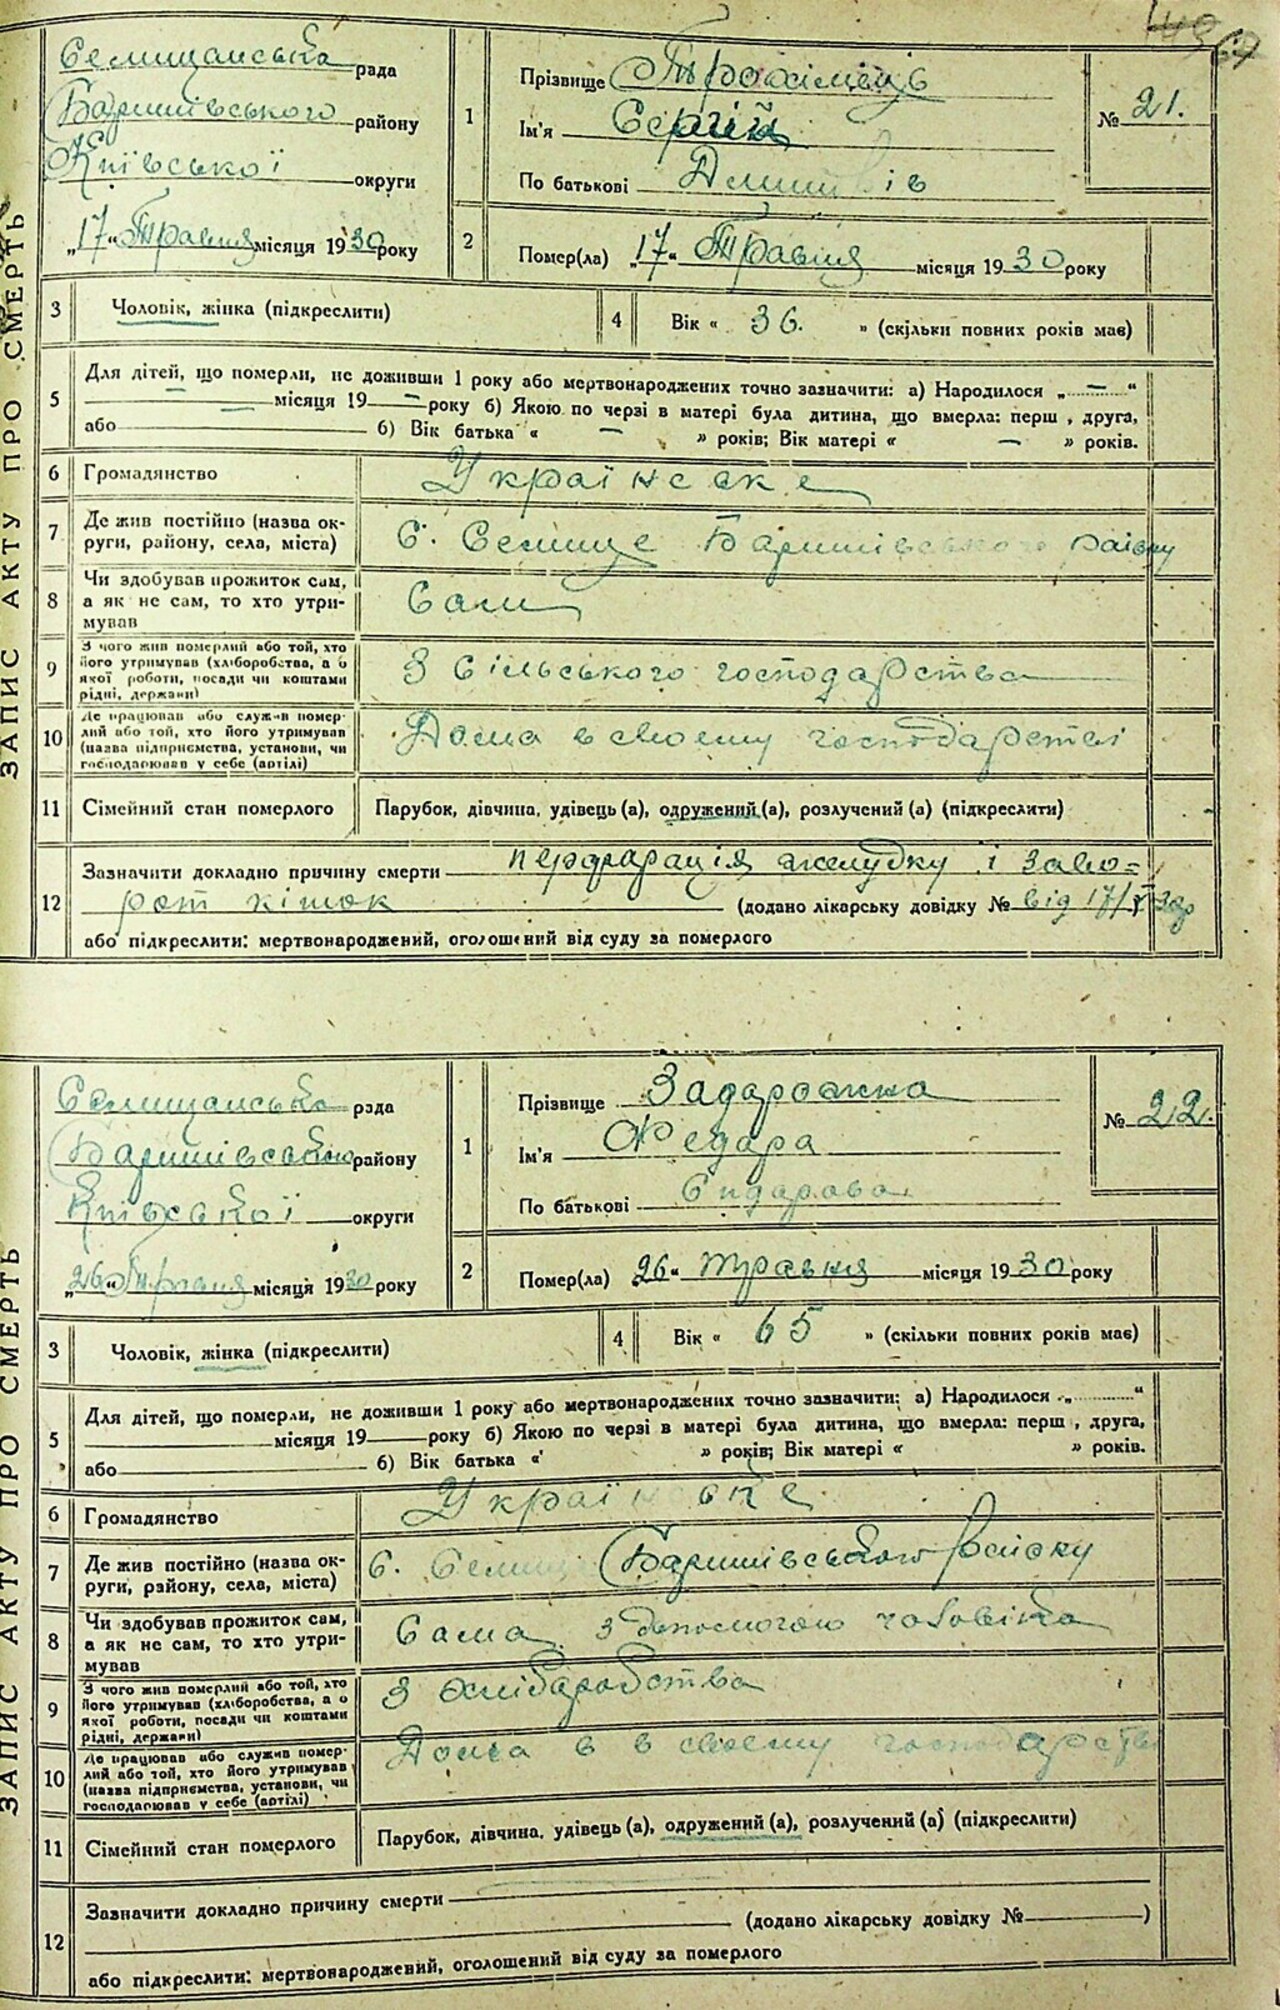 ЗАПИС АКТУ ПРО СМЕРТЬ
Селищанська рада
Баришівського району
Київської округи
„17“ Травня місяця 1930 року
1
Прізвище Трохимець
Ім'я Сергій
По батькові
№ 21.
2
Помер(ла) „17“ Травня місяця 1930 року
3 Чоловік, жінка (підкреслити)
4 Вік « 36. » (скільки повних років мав)
5 Для дітей, що померли, не доживши 1 року або мертвонароджених точно зазначити: а) Народилося „ — “
— місяця 19 — року б) Якою по черзі в матері була дитина, що вмерла: перш , друга,
або б) Вік батька « — » років; Вік матері « — » років.
6 Громадянство Українське
7 Де жив постійно (назва ок-
руги, району, села, міста) С. Селище Баришівського району
8 Чи здобував прожиток сам,
а як не сам, то хто утри-
мував Сам
9 З чого жив померлий або той, хто
його утримував (хліборобства, а о
якої роботи, посади чи коштами
рідні, держави) З сільського господарства
10 Де працював або служив помер-
лий або той, хто його утримував
(назва підприємства, установи, чи
господарював у себе (артілі) Дома в своєму господарстві
11 Сімейний стан померлого Парубок, дівчина, удівець (а), одружений (а), розлучений (а) (підкреслити)
12 Зазначити докладно причину смерти перфорація желудку і заво=
рот кішок (додано лікарську довідку № від 17/V 30р
або підкреслити: мертвонароджений, оголошений від суду за померлого
ЗАПИС АКТУ ПРО СМЕРТЬ
Селищанська рада
Баришівського району
Київської округи
„26“ Травня місяця 1930 року
1
Прізвище Задарожна
Ім'я Федара
По батькові Сидарова
№ 22.
2
Помер(ла) 26“ травня місяця 1930 року
3 Чоловік, жінка (підкреслити)
4 Вік « 65 » (скільки повних років мав)
5 Для дітей, що померли, не доживши 1 року або мертвонароджених точно зазначити: а) Народилося „ “
місяця 19 року б) Якою по черзі в матері була дитина, що вмерла: перш , друга,
або б) Вік батька « » років; Вік матері « » років.
6 Громадянство Українське
7 Де жив постійно (назва ок-
руги, району, села, міста) С. Селище Баришівського району
8 Чи здобував прожиток сам,
а як не сам, то хто утри-
мував Сама з допомогою чоловіка
9 З чого жив померлий або той, хто
його утримував (хліборобства, а о
якої роботи, посади чи коштами
рідні, держави) З хліборобства
10 Де працював або служив помер-
лий або той, хто його утримував
(назва підприємства, установи, чи
господарював у себе (артілі) Дома в в своєму господарстві
11 Сімейний стан померлого Парубок, дівчина, удівець (а), одружений (а), розлучений (а) (підкреслити)
12 Зазначити докладно причину смерти
(додано лікарську довідку № )
або підкреслити: мертвонароджений, оголошений від суду за померлого